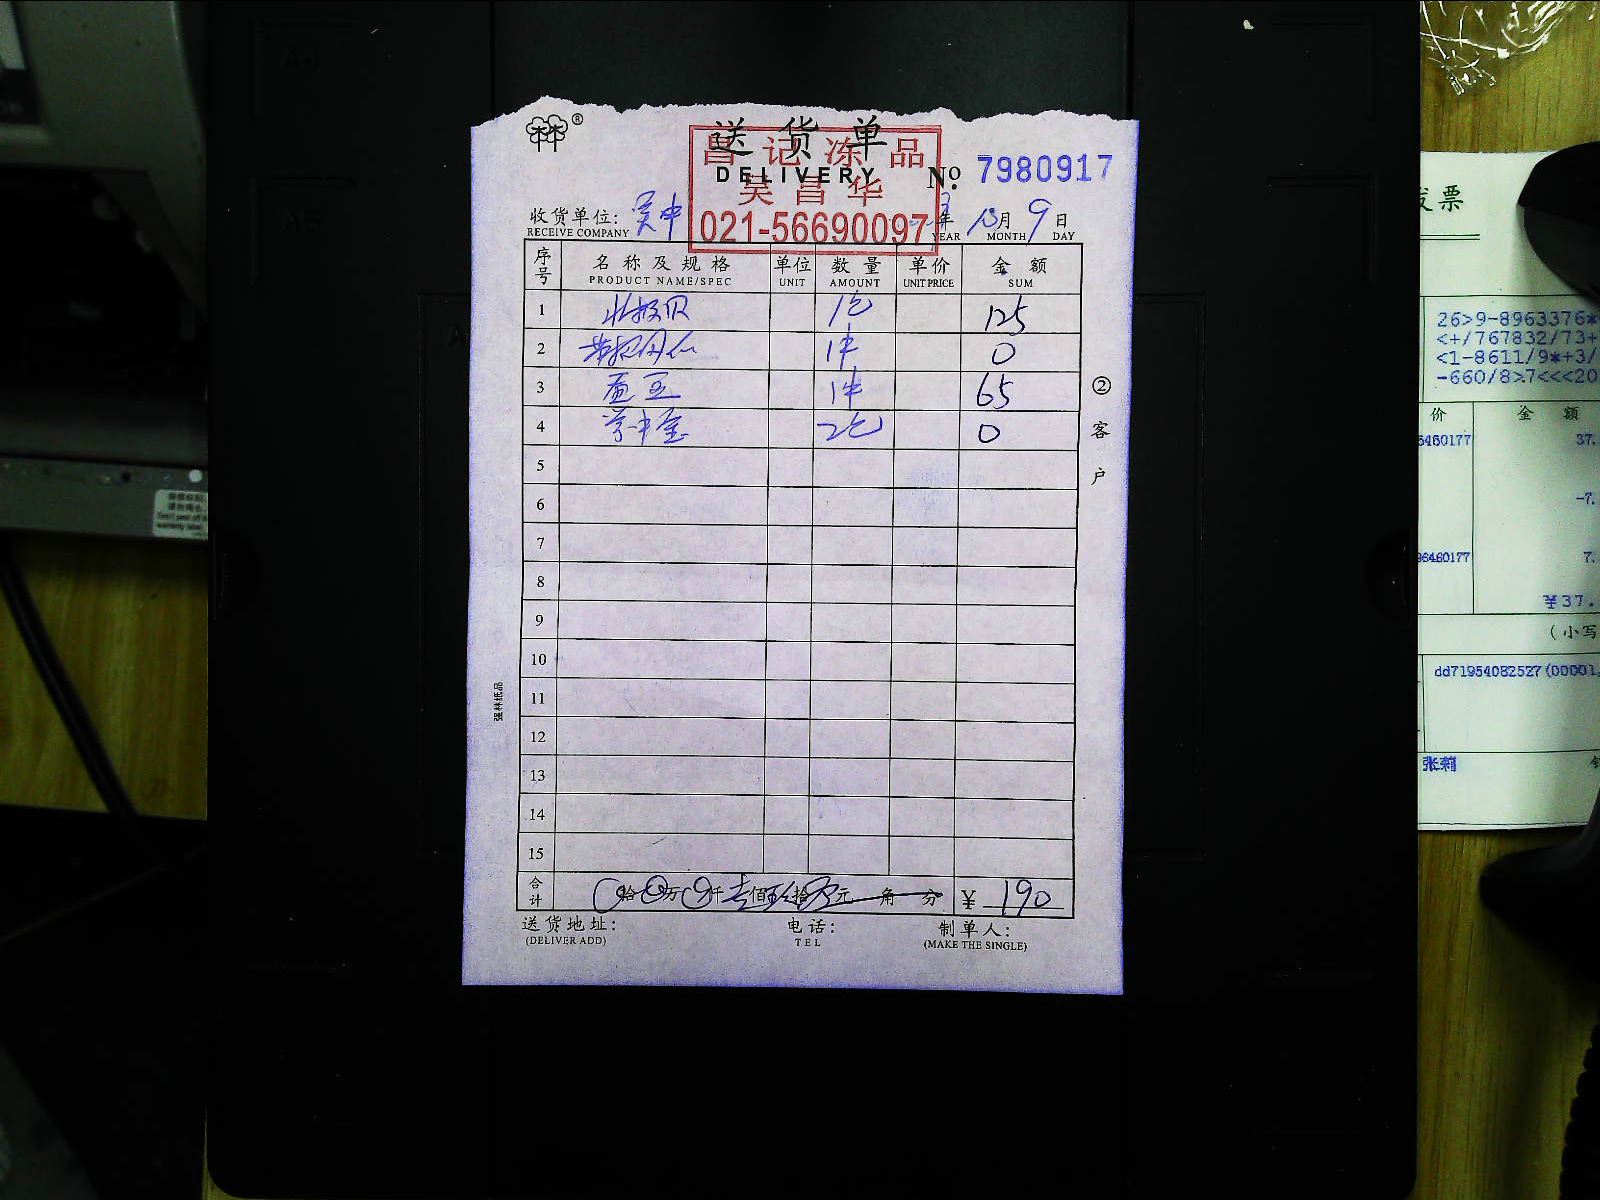 林 ®
送货单
DELIVERY
昌记冻品
吴昌华
021-56690097
No. 7980917
收货单位: 吴中 3年 10月 9日
RECEIVE COMPANY YEAR MONTH DAY
序号 名称及规格 单位 数量 单价 金额
PRODUCT NAME/SPEC UNIT AMOUNT UNIT PRICE SUM
1 北极贝 1包 125
2 1件 0
3 蚕豆 1件 65
4 2包 0
5
6
7
8
9
10
11
12
13
14
15
合计 拾 万 仟 佰 拾 元 角 分 ¥ 190
送货地址: 电话: 制单人:
(DELIVER ADD) TEL (MAKE THE SINGLE)
②客户
强林纸品
发票
26>9-8963376*
<+/767832/73+
<1-8611/9*+3/
-660/8>7<<<20
价 金额
6460177 37.
-7.
96460177 7.
¥37.
(小写
dd71954082527(00001,
张莉